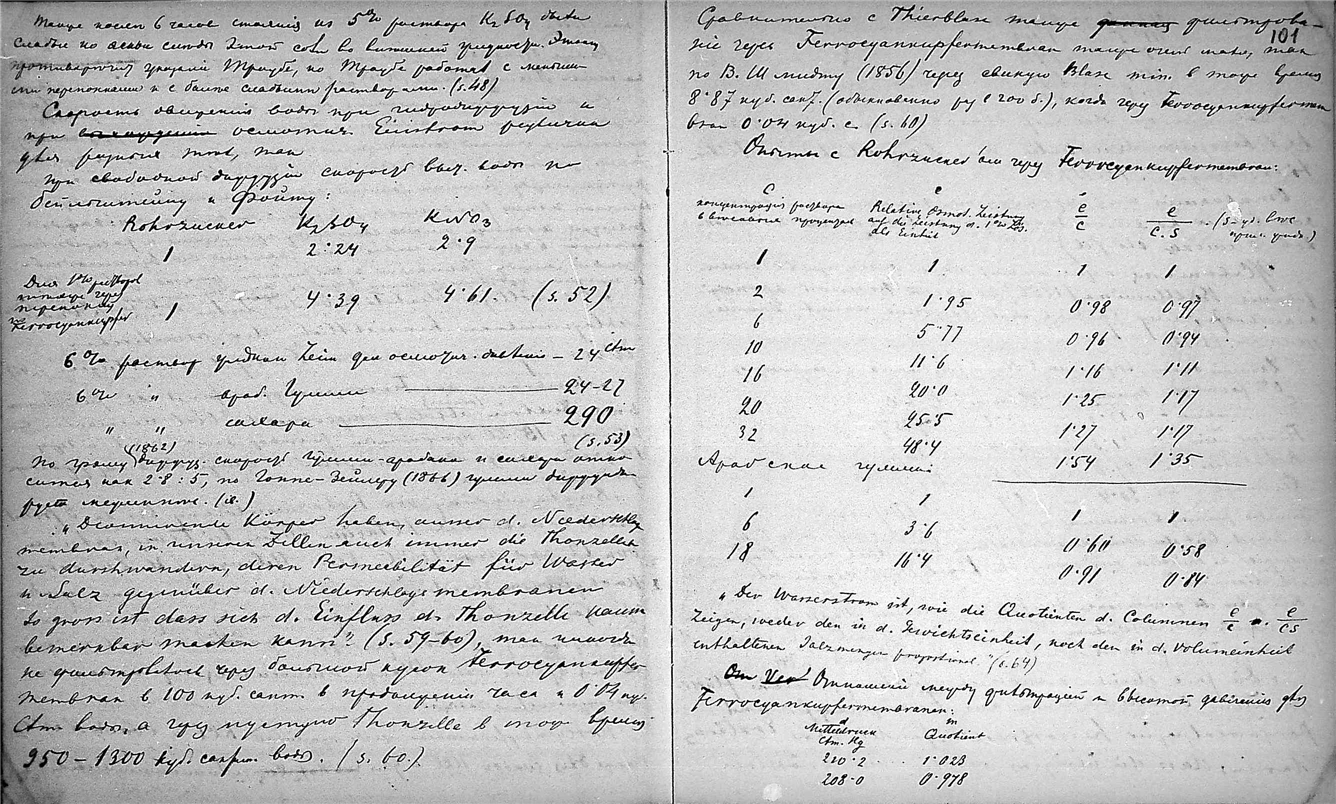 Также после 6 часов стояния из 5% раствора K₂SO₄ были
слабые но ясные следы этой соли во внешней жидкости. Этим
противоречит Траубе, но Траубе работал с меньши-
ми перепонками и с более слабыми растворами. (s. 48)
Скорость движения воды при гидродиффузии и
при осмотич. Einstrom различна
для разных тел, так
при свободной диффузии скорость воды по
Бейльштейну и Фойту:
Rohrzucker K₂SO₄ KNO₃
1 2·24 2·9
Для 1% раствора
также через
перепонку
из Ferrocyankupfer
1 4·39 4·61. (s. 52)
6% раствор жидкий Leim дал осмотич. давление – 24 ctm
6% " араб. Гумми 24–27
" " сахара 290
(s. 53)
По Грэму (1862) диффуз. скорость Гумми-арабика и сахара отно-
сится как 2·8 : 5, по Гоппе-Зейлеру (1866) гумми диффунди-
рует медленнее. (id.)
„Diosmirende Körper haben, ausser d. Niederschlags-
membran, in unseren Zellen auch immer die Thonzellen
zu durchwandern, deren Permeabilität für Wasser
u. Salz gegenüber d. Niederschlagsmembranen
so gross ist dass sich d. Einfluss d. Thonzelle kaum
bemerkbar machen kann." (s. 59–60), так никогда
не фильтровалось через большой кусок Ferrocyankupfer-
membran в 100 куб. сант. в продолжении часа и 0·04 куб.
ctm воды, а через пустую Thonzelle в то же время
950 – 1300 куб. сантим. воды. (s. 60.).
101
Сравнительно с Thierblase также фильтрова-
ние через Ferrocyankupfermembran также очень мало, так
по В. Шмидту (1856) через свиную Blase min. в то же время
8·87 куб. сант. (обыкновенно 200 б.), когда через Ferrocyankupfermem-
bran 0·04 куб. с. (s. 60)
Опыты с Rohrzucker'ом через Ferrocyankupfermembran:
C e
концентрация раствора Relative Osmot. Leistung e/c e/c.s (s – уд. вес
в весовых процентах auf die Leistung d. 1% Lös.
als Einheit
1 1 1 1
2 1·95 0·98 0·97
6 5·77 0·96 0·94
10 11·6 1·16 1·11
16 20·0 1·25 1·17
20 25·5 1·27 1·17
32 48·4 1·54 1·35
Арабское гумми:
1 1 1 1
6 3·6 0·60 0·58
18 16·4 0·91 0·84
„Der Wasserstrom ist, wie die Quotienten d. Columnen e/c u. e/cs
zeigen, weder den in d. Gewichtseinheit, noch den in d. Volumeinheit
enthaltenen Salzmengen proportional." (s. 64)
Отношение между фильтрацией и высотой давления для
Ferrocyankupfermembranen:
d m
Mitteldruck Quotient
Ctm. Hg
210·2 1·023
208·0 0·978